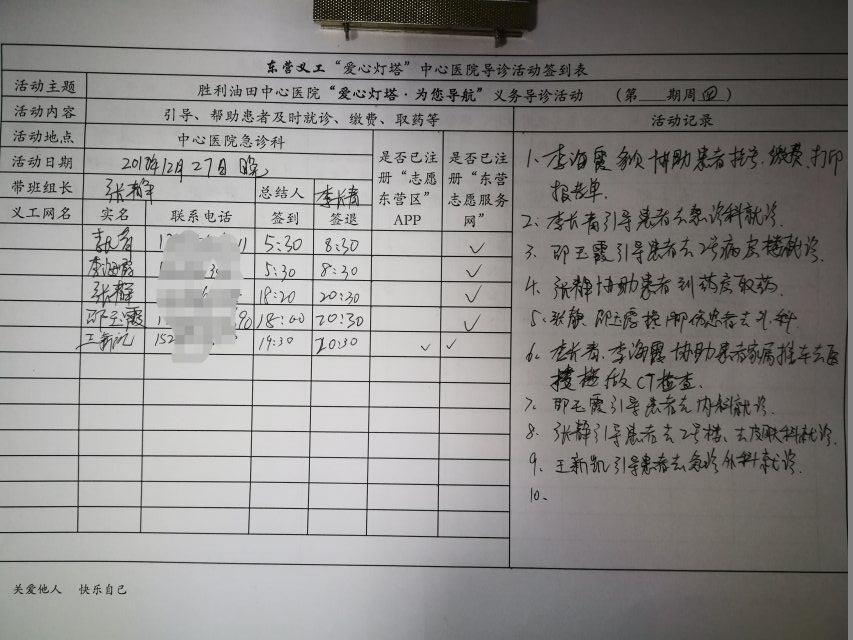 东营义工“爱心灯塔”中心医院导诊活动签到表
活动主题 胜利油田中心医院“爱心灯塔·为您导航”义务导诊活动 (第 期周四)
活动内容 引导、帮助患者及时就诊、缴费、取药等 活动记录
活动地点 中心医院急诊科
活动日期 2017年12月27日 晚
带班组长 张静 总结人 李长青
是否已注册“志愿东营区”APP
是否已注册“东营志愿服务网”
义工网名 实名 联系电话 签到 签退
李长青 5:30 8:30 ✓
李海霞 5:30 8:30 ✓
张静 18:20 20:30 ✓
邵玉霞 18:00 20:30 ✓
王新凯 152 19:30 20:30 ✓ ✓
1、李海霞 协助患者挂号、缴费、打印
报告单.
2、李长青引导患者去急诊科就诊.
3、邵玉霞引导患者去2号病房楼就诊.
4、张静协助患者到药房取药.
5、张静、邵玉霞 患者去外科
6、李长青、李海霞协助患者家属推车去
做CT检查.
7、邵玉霞引导患者去内科就诊.
8、张静引导患者去2号楼、去皮肤科就诊.
9、王新凯引导患者去急诊外科就诊.
10、
关爱他人 快乐自己